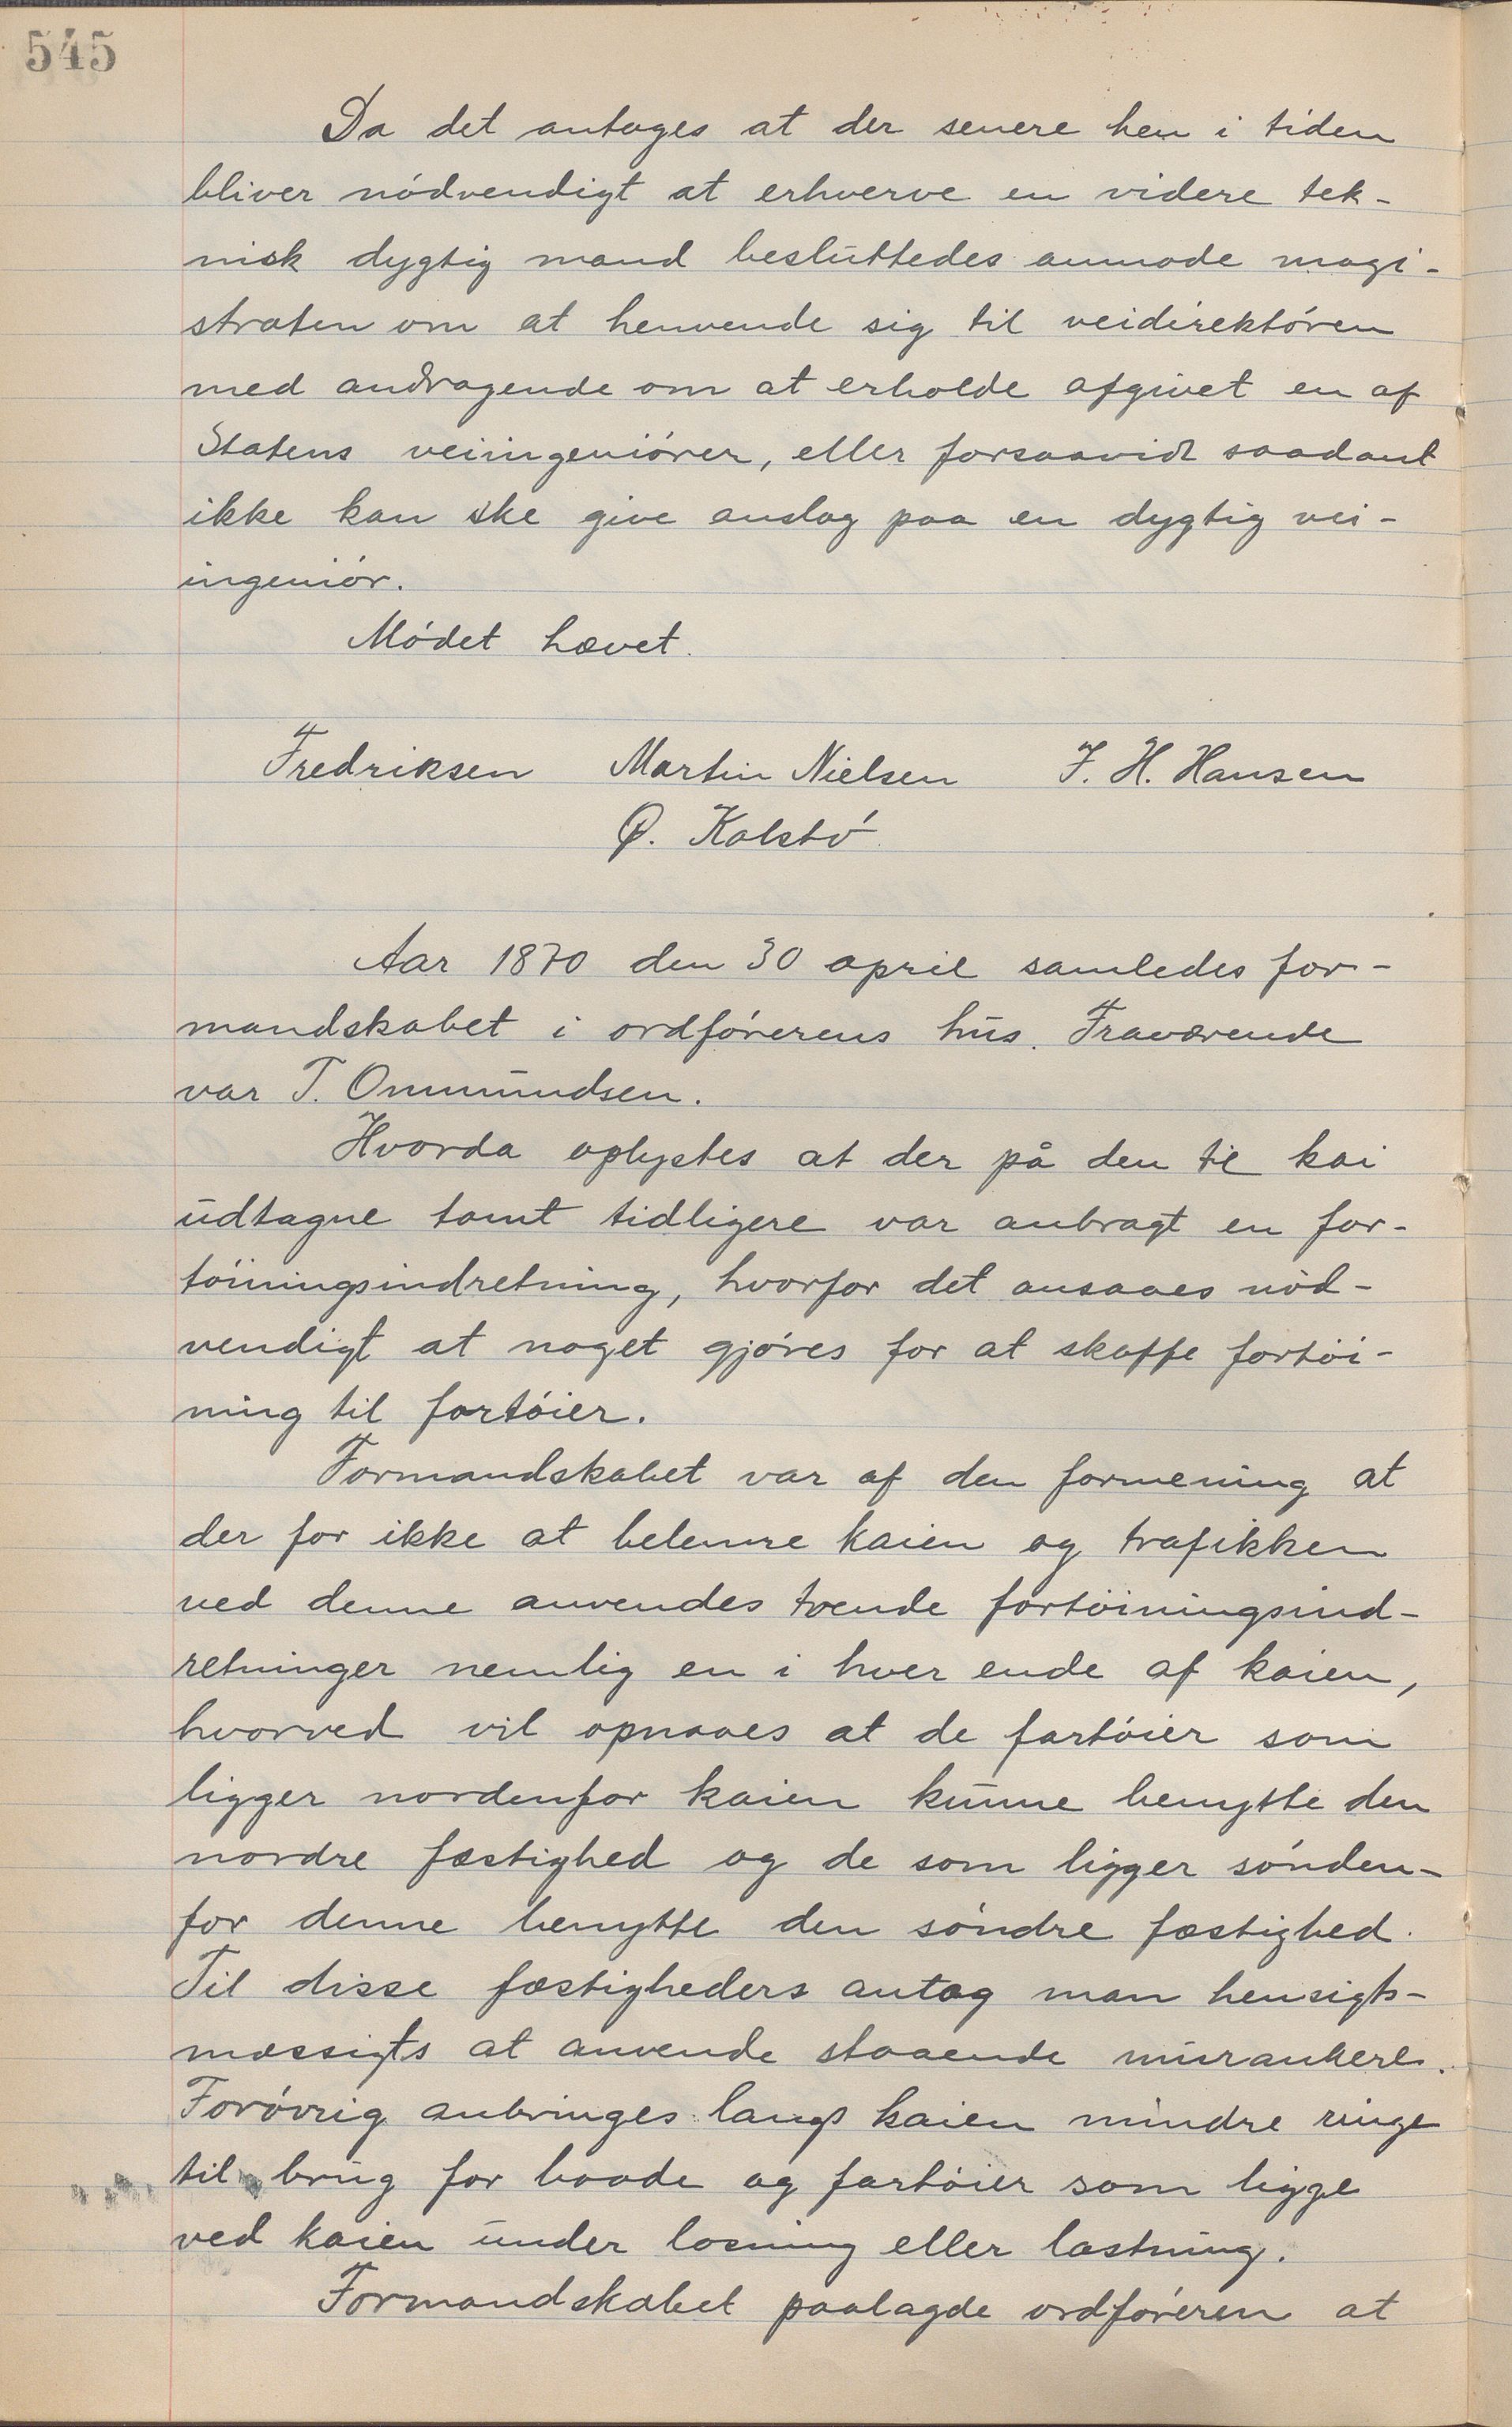 545
Da det antages at der senere hen i tiden
bliver nödvendigt at erhverve en videre tek-
nisk dygtig mand besluttedes anmode magi-
straten om at henvende sig til veidirektören
med andragende om at erholde afgivet en af
Statens veiingeniörer, eller forsaavidt saadant
ikke kan ske give anslag paa en dygtig vei-
ingeniör.
Mödet hævet.
Fredriksen Martin Nielsen F. H. Hansen
Ø. Kalstö
Aar 1870 den 30 april samledes for-
mandskabet i ordförerens hus. Fraværende
var T. Ommundsen.
Hvorda oplystes at der på den til kai
udtagne tomt tidligere var anbragt en for-
töiningsindretning, hvorfor det ansaaes nöd-
vendigt at noget gjöres for at skaffe fortöi-
ning til fartöier.
Formandskabet var af den formening at
der for ikke at belemre kaien og trafikken
ved denne anvendes tvende fortöiningsind-
retninger nemlig en i hver ende af kaien,
hvorved vil opnaaes at de fartöier som
ligger nordenfor kaien kunne benytte den
nordre fæstighed og de som ligger sönden-
for denne benytte den söndre fæstighed.
Til disse fæstigheders antog man hensigts-
mæssigts at anvende staaende murankere.
Forövrig anbringes langs kaien mindre ringe
til brug for baade og fartöier som ligge
ved kaien under losning eller lastning.
Formandskabet paalagde ordföreren at